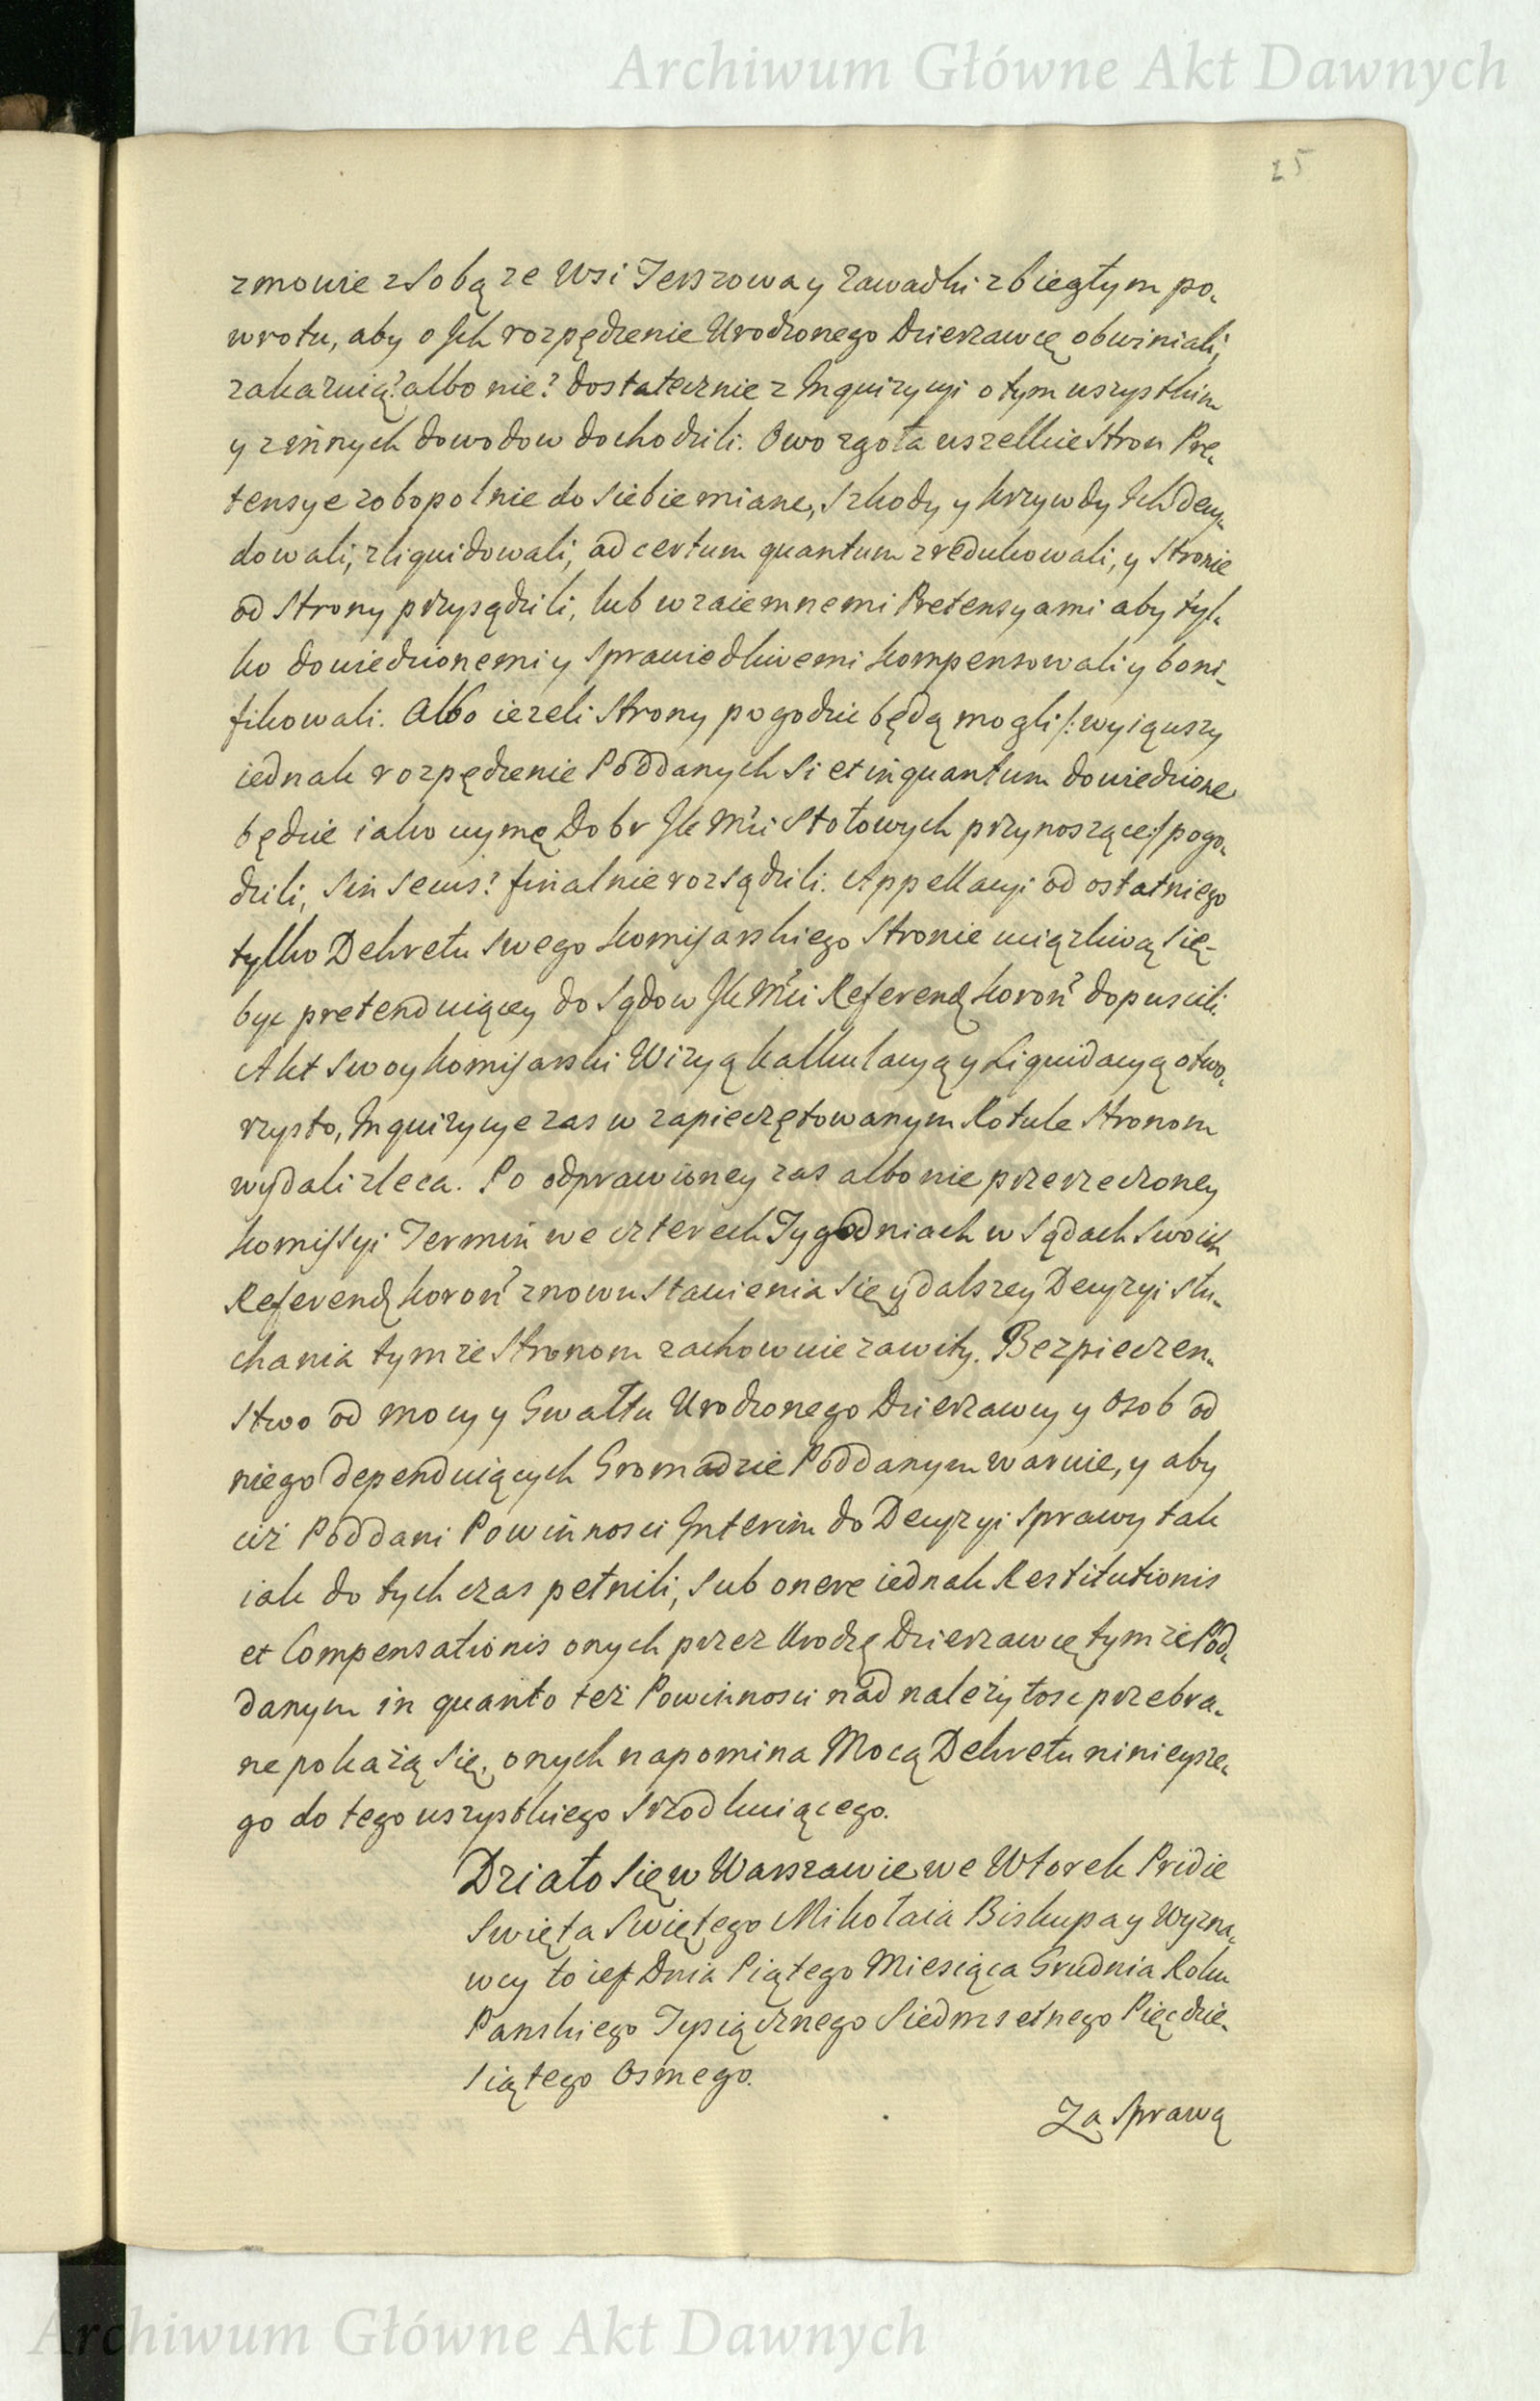 Archiwum Główne Akt Dawnych
25
zmowie z Sobą ze Wsi Jerszowa y Zawadki zbiegłym po-
wrotu, aby o Jch rozpędzenie Urodzonego Dzierzawcę obwiniali,
zakazuią? albo nie? dostatecznie z Jnquizycyi o tym wszystkim
y z innych dowodow dochodzili. Owo zgoła wszelkie Stron Pre-
tensye zobopolnie do Siebie miane, Szkody y krzywdy Jch decy-
dowali, zliquidowali, ad certum quantum zredukowali, y Stronie
od Strony przysądzili, lub wzaiemnemi Pretensyami aby tyl-
ko dowiedzionemi y Sprawiedliwemi kompensowali y boni-
fikowali. Albo iezeli Strony pogodzic będą mogli /: wyiąwszy
iednak rozpędzenie Poddanych Si et inquantum dowiedzione
będzie iako uymę Dobr Jk Mci Stołowych przynoszące :/ pogo-
dzili, Sin Secus? finalnie rozsądzili. Appellacyi od ostatniego
tylko Dekretu Swego komisarskiego Stronie uciązliwą Się-
byc pretenduiącey do Sądow Jk Mci Referend koron dopuscili
Akt Swoy komisarski Wizyą kalkulacyą y Liquidacyą otwo-
rzysto, Jnquizycye zas w zapieczętowanym Rotule Stronom
wydali zleca. Po odprawioney zas albo nie przerzeczoney
komissyi Termin we czterech Tygodniach w Sądach Swoich
Referend koron znowu Stawienia Się y dalszey Decyzyi Słu-
chania tymze Stronom zachowuie zawity. Bezpieczen-
Stwo od mocy y Gwałtu Urodzonego Dzierzawcy y Osob od
niego dependuiących Gromadzie Poddanym waruie, y aby
ciż Poddani Powinnosci Jnterim do Decyzyi Sprawy tak
iak do tych czas pełnili, Sub onere iednak Restitutionis
et Compensationis onych przez Urodzę Dzierzawcę tymze Pod-
danym in quanto też Powinnosci nad należytosc przebra-
ne pokażą Się, onych napomina Mocą Dekretu ninieysze-
go do tego wszystkiego Srzodkuiącego.
Działo Się w Warszawie we Wtorek Pridie
Swięta Swiętego Mikołaia Biskupa y Wyzna-
wcy to iest Dnia Piątego Miesiąca Grudnia Roku
Panskiego Tysiącznego Siedmsetnego Pięcdzie-
Siątego Osmego.
Za Sprawą
Archiwum Główne Akt Dawnych